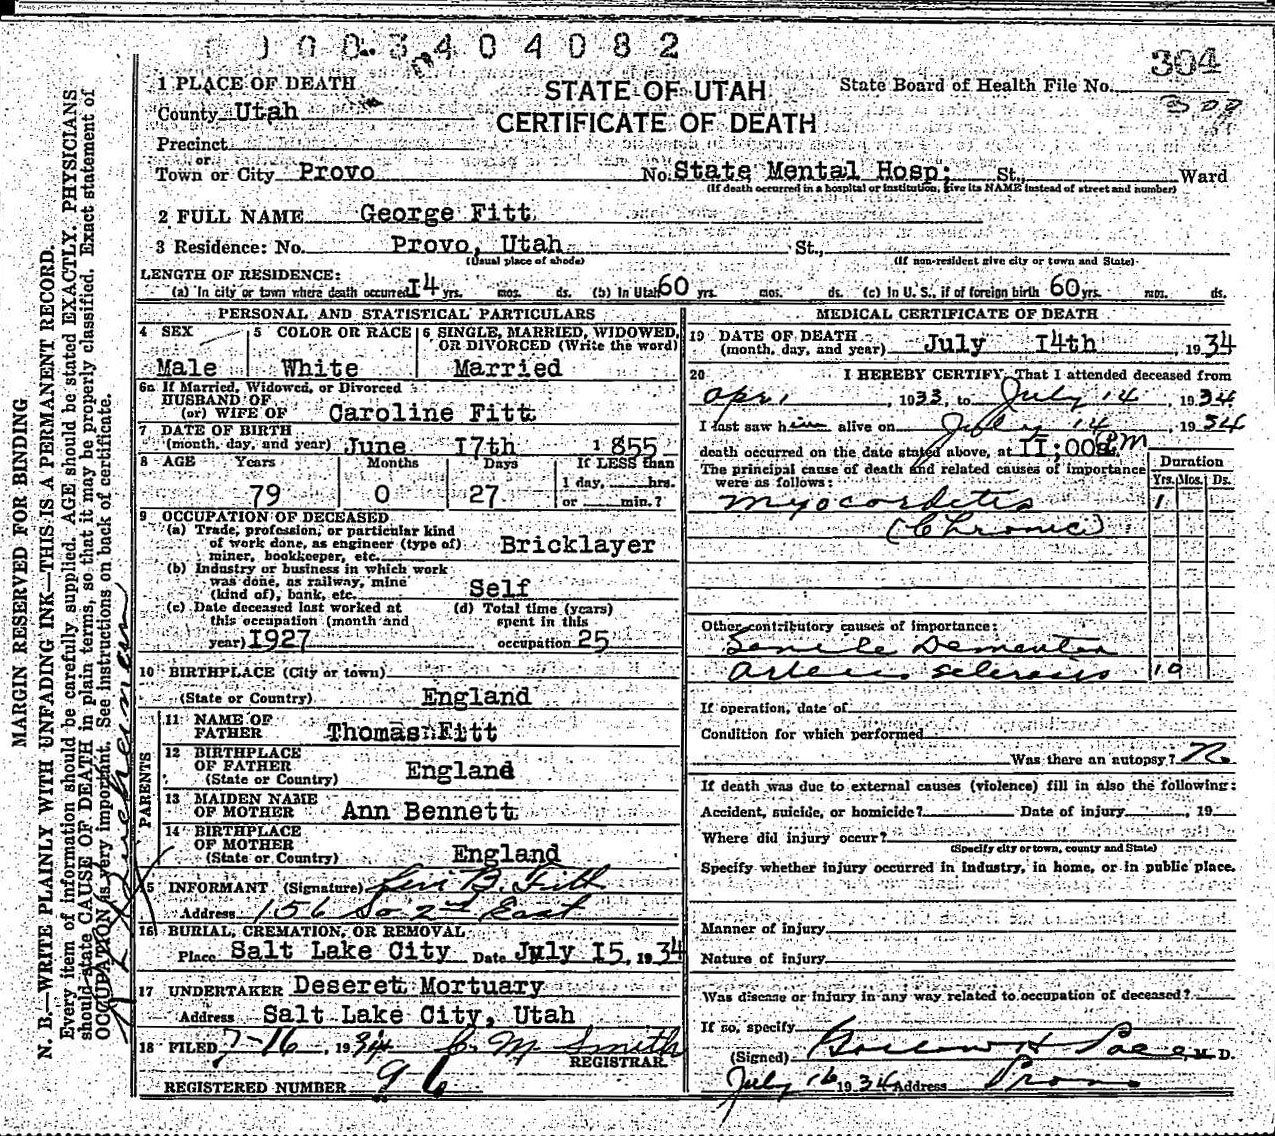 0 0 0 3 4 0 4 0 8 2
304
309
1 PLACE OF DEATH
STATE OF UTAH
State Board of Health File No.
County Utah
CERTIFICATE OF DEATH
Precinct
or
Town or City Provo No. State Mental Hosp; St., Ward
(If death occurred in a hospital or institution, give its NAME instead of street and number)
2 FULL NAME George Fitt
3 Residence: No. Provo, Utah St.,
(Usual place of abode) (If non-resident give city or town and State)
LENGTH OF RESIDENCE:
(a) In city or town where death occurred I4 yrs. mos. ds. (b) In Utah 60 yrs. mos. ds. (c) In U. S., if of foreign birth 60 yrs. mos. ds.
PERSONAL AND STATISTICAL PARTICULARS
4 SEX 5 COLOR OR RACE 6 SINGLE, MARRIED, WIDOWED,
OR DIVORCED (Write the word)
Male White Married
6a If Married, Widowed, or Divorced
HUSBAND OF
(or) WIFE OF Caroline Fitt
7 DATE OF BIRTH
(month, day, and year) June I7th 1855
8 AGE Years Months Days If LESS than
1 day, hrs.
79 0 27 or min.?
9 OCCUPATION OF DECEASED
(a) Trade, profession, or particular kind
of work done, as engineer (type of) Bricklayer
miner, bookkeeper, etc.
(b) Industry or business in which work
was done, as railway, mine Self
(kind of), bank, etc.
(c) Date deceased last worked at (d) Total time (years)
this occupation (month and spent in this
year) I927 occupation 25
10 BIRTHPLACE (City or town)
(State or Country) England
PARENTS
11 NAME OF
FATHER Thomas Fitt
12 BIRTHPLACE
OF FATHER England
(State or Country)
13 MAIDEN NAME
OF MOTHER Ann Bennett
14 BIRTHPLACE
OF MOTHER
(State or Country) England
15 INFORMANT (Signature) Levi B. Fitt
Address 156 So 2nd East
16 BURIAL, CREMATION, OR REMOVAL
Place Salt Lake City Date July I5, 1934
17 UNDERTAKER Deseret Mortuary
Address Salt Lake City, Utah
18 FILED 7-16, 1934 M Smith
REGISTRAR.
REGISTERED NUMBER 96
MEDICAL CERTIFICATE OF DEATH
19 DATE OF DEATH
(month, day, and year) July I4th, 1934
20 I HEREBY CERTIFY, That I attended deceased from
Apr 1, 1933, to July 14, 1934
I last saw him alive on July 14, 1934
death occurred on the date stated above, at II;00 PM
The principal cause of death and related causes of importance
were as follows:
Duration
Yrs. Mos. Ds.
Myocordetis 1
(Chronic)
Other contributory causes of importance:
Senile Dementia
Arterio sclerosis 10
If operation, date of
Condition for which performed
Was there an autopsy? No
If death was due to external causes (violence) fill in also the following:
Accident, suicide, or homicide? Date of injury, 19
Where did injury occur?
(Specify city or town, county and State)
Specify whether injury occurred in industry, in home, or in public place.
Manner of injury
Nature of injury
Was disease or injury in any way related to occupation of deceased?
If so, specify
(Signed) M. D.
July 16 1934 Address Provo
MARGIN RESERVED FOR BINDING
N. B.—WRITE PLAINLY WITH UNFADING INK—THIS IS A PERMANENT RECORD.
Every item of information should be carefully supplied. AGE should be stated EXACTLY. PHYSICIANS
should state CAUSE OF DEATH in plain terms, so that it may be properly classified. Exact statement of
OCCUPATION is very important. See instructions on back of certificate.